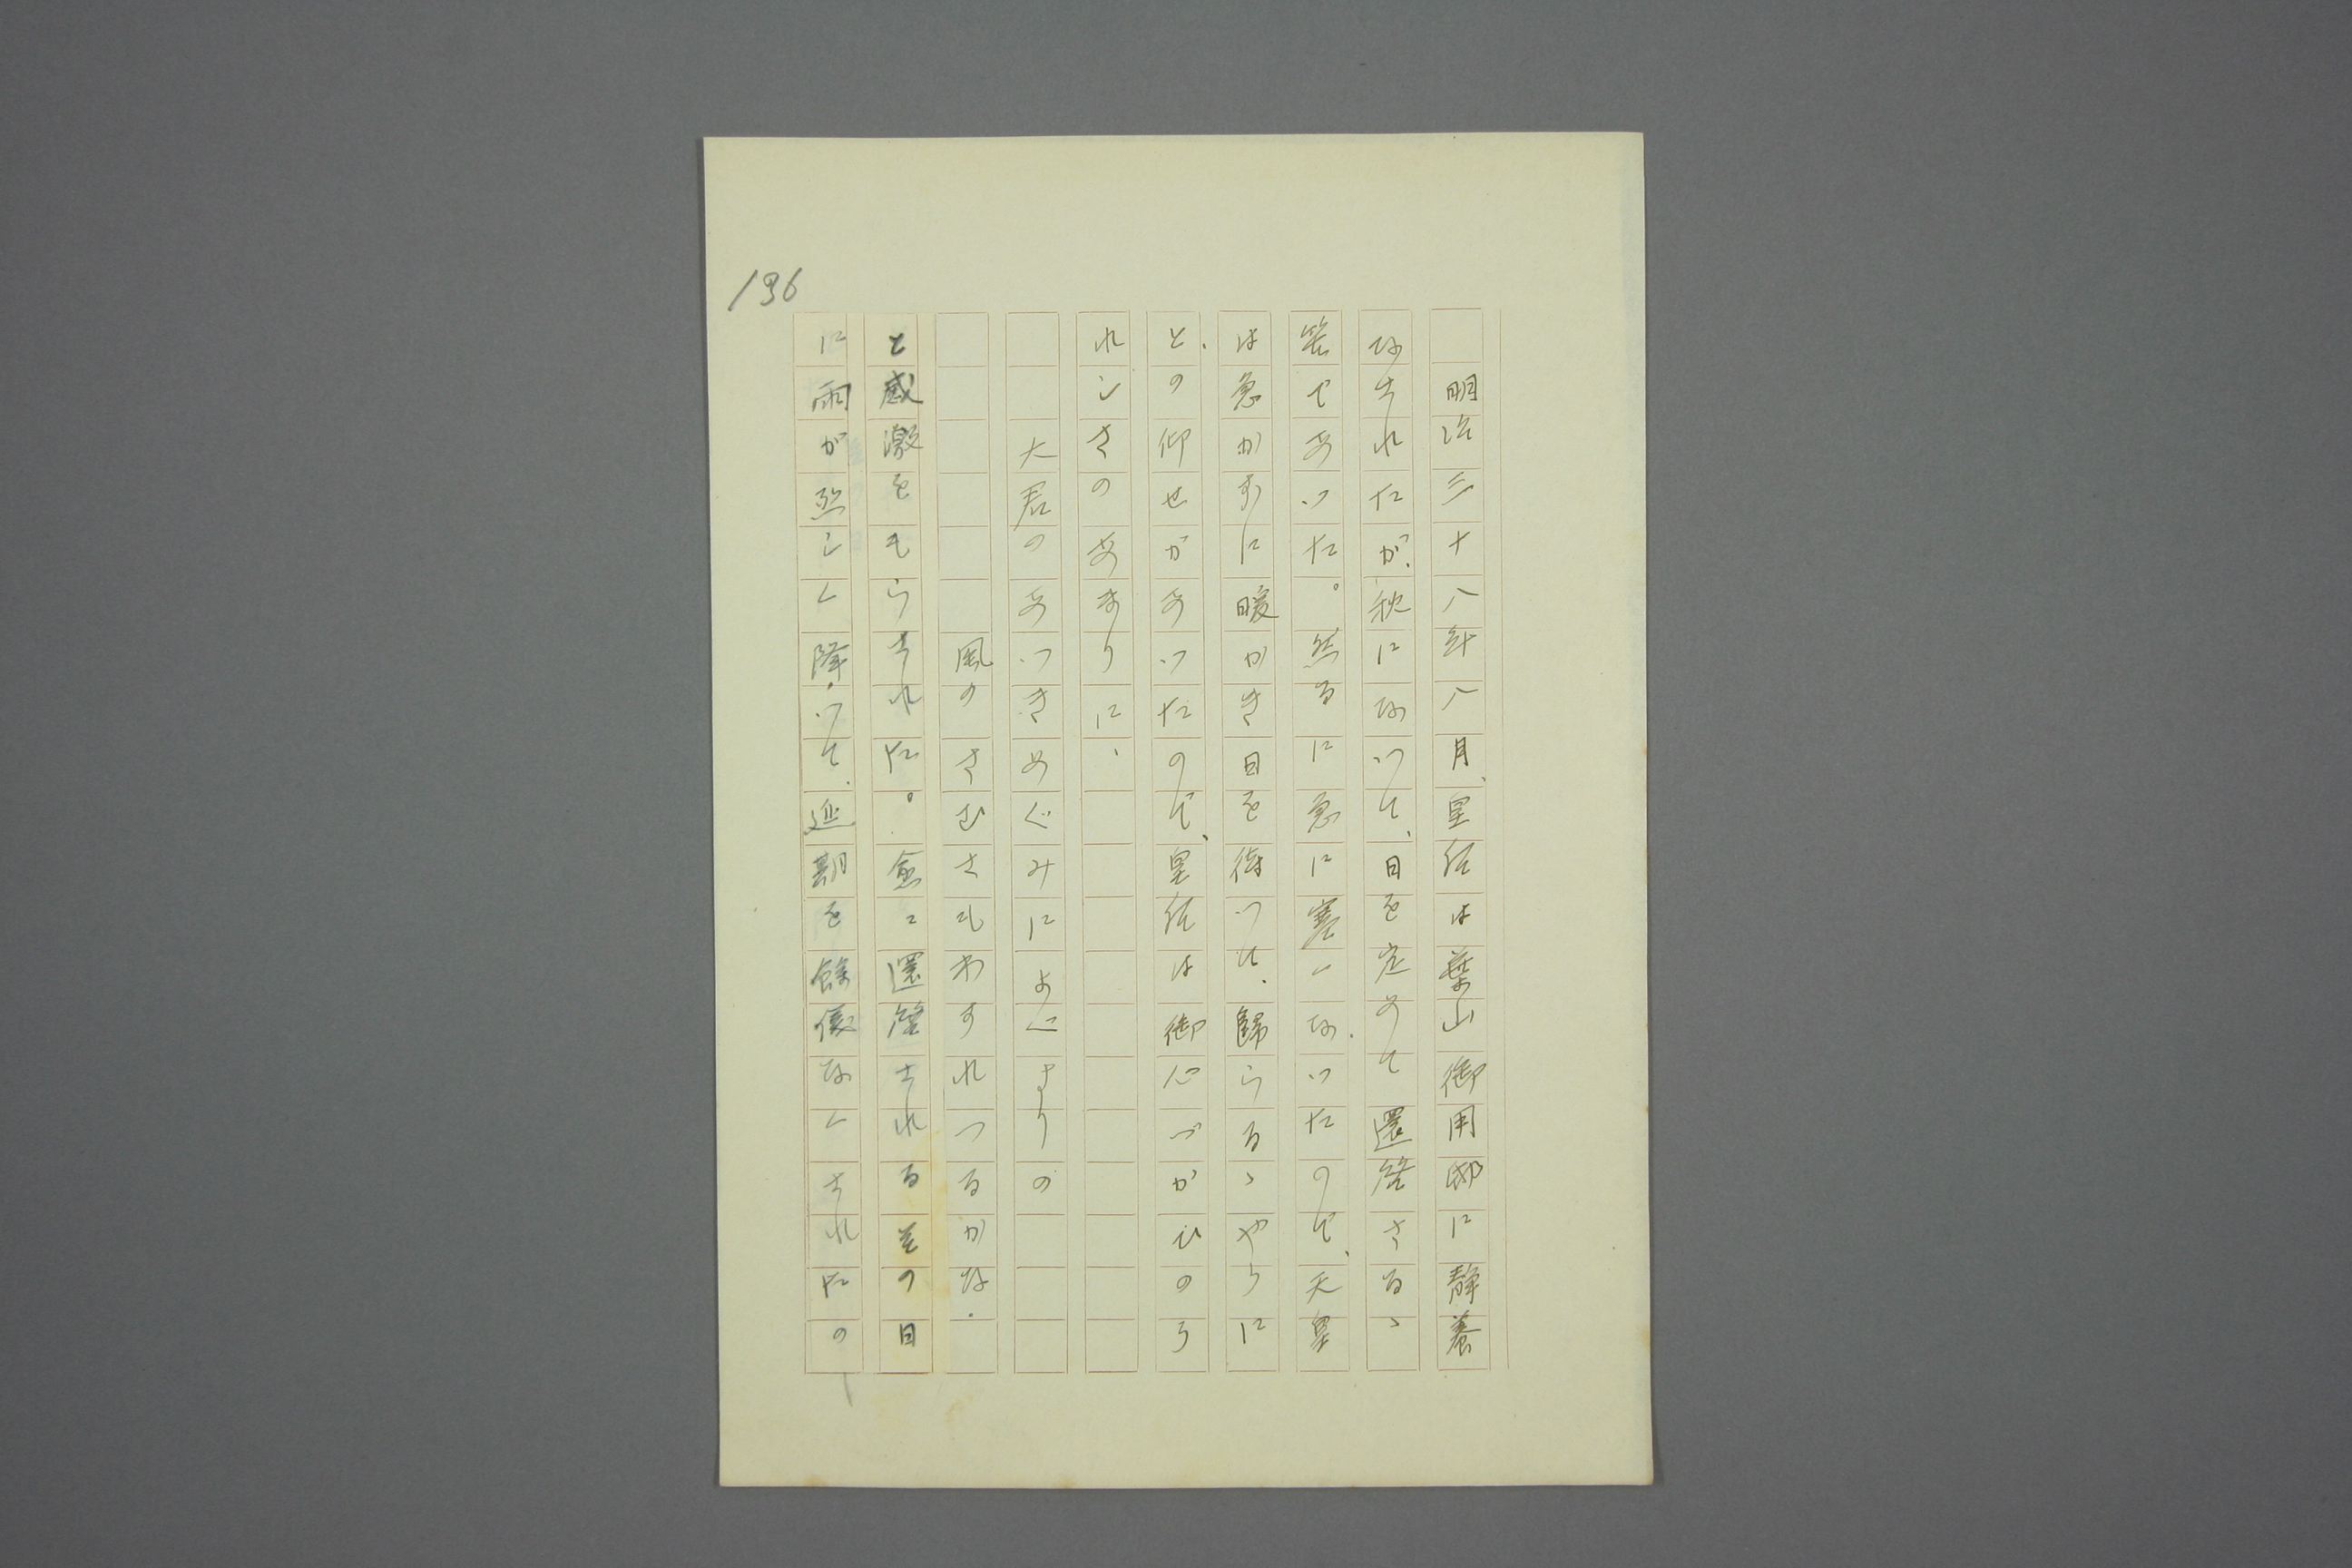 136
明治三十八年八月、皇后は葉山御用邸に静養
なされたが、秋になつて、日を定めて還啓さるゝ
筈であつた。然るに急に寒くなつたので、天皇
は急かずに暖かき日を待つて、歸らるゝやうに
と、の仰せがあつたので、皇后は御心づかひのう
れしさのあまりに、
大君のあつきめぐみによべよりの
風のさむさもわすれつるかな。
と感激をもらされた。愈々還啓されるその日
に雨が烈しく降つて、延期を餘儀なくされたの